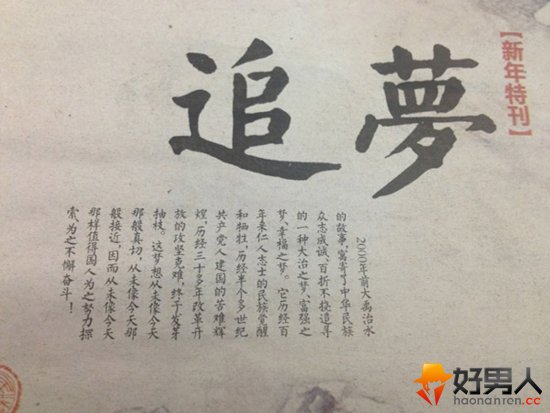 【新年特刊】
追夢
2000年前大禹治水
的故事,寓寄了中华民族
众志成诚、百折不挠追寻
的一种大治之梦、富强之
梦、幸福之梦。它历经百
年来仁人志士的民族觉醒
和牺牲,历经半个多世纪
共产党人建国的苦难辉
煌,历经三十多年改革开
放的攻坚克难,终于发芽
抽枝。这梦想从未像今天
那般真切,从未像今天那
般接近,因而从未像今天
那样值得国人为之努力探
索、为之不懈奋斗!
好男人
haonanren.cc